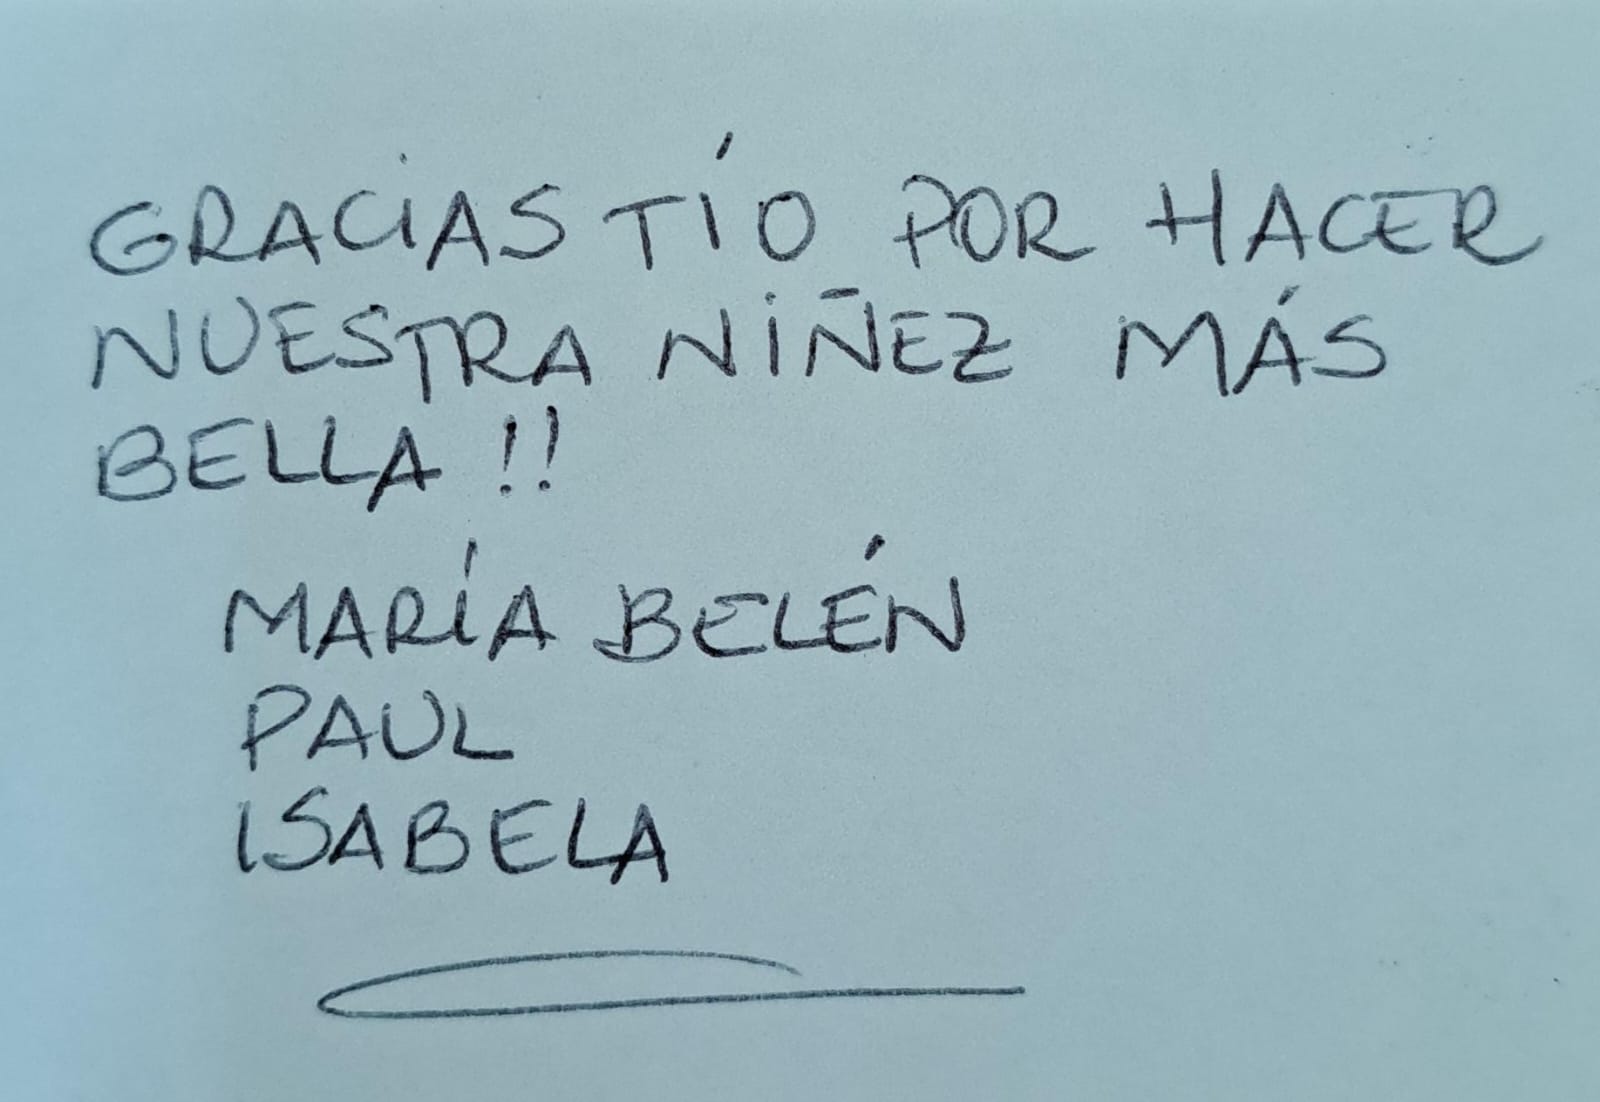 GRACIAS TÍO POR HACER
NUESTRA NIÑEZ MÁS
BELLA !!
MARÍA BELÉN
PAUL
ISABELA